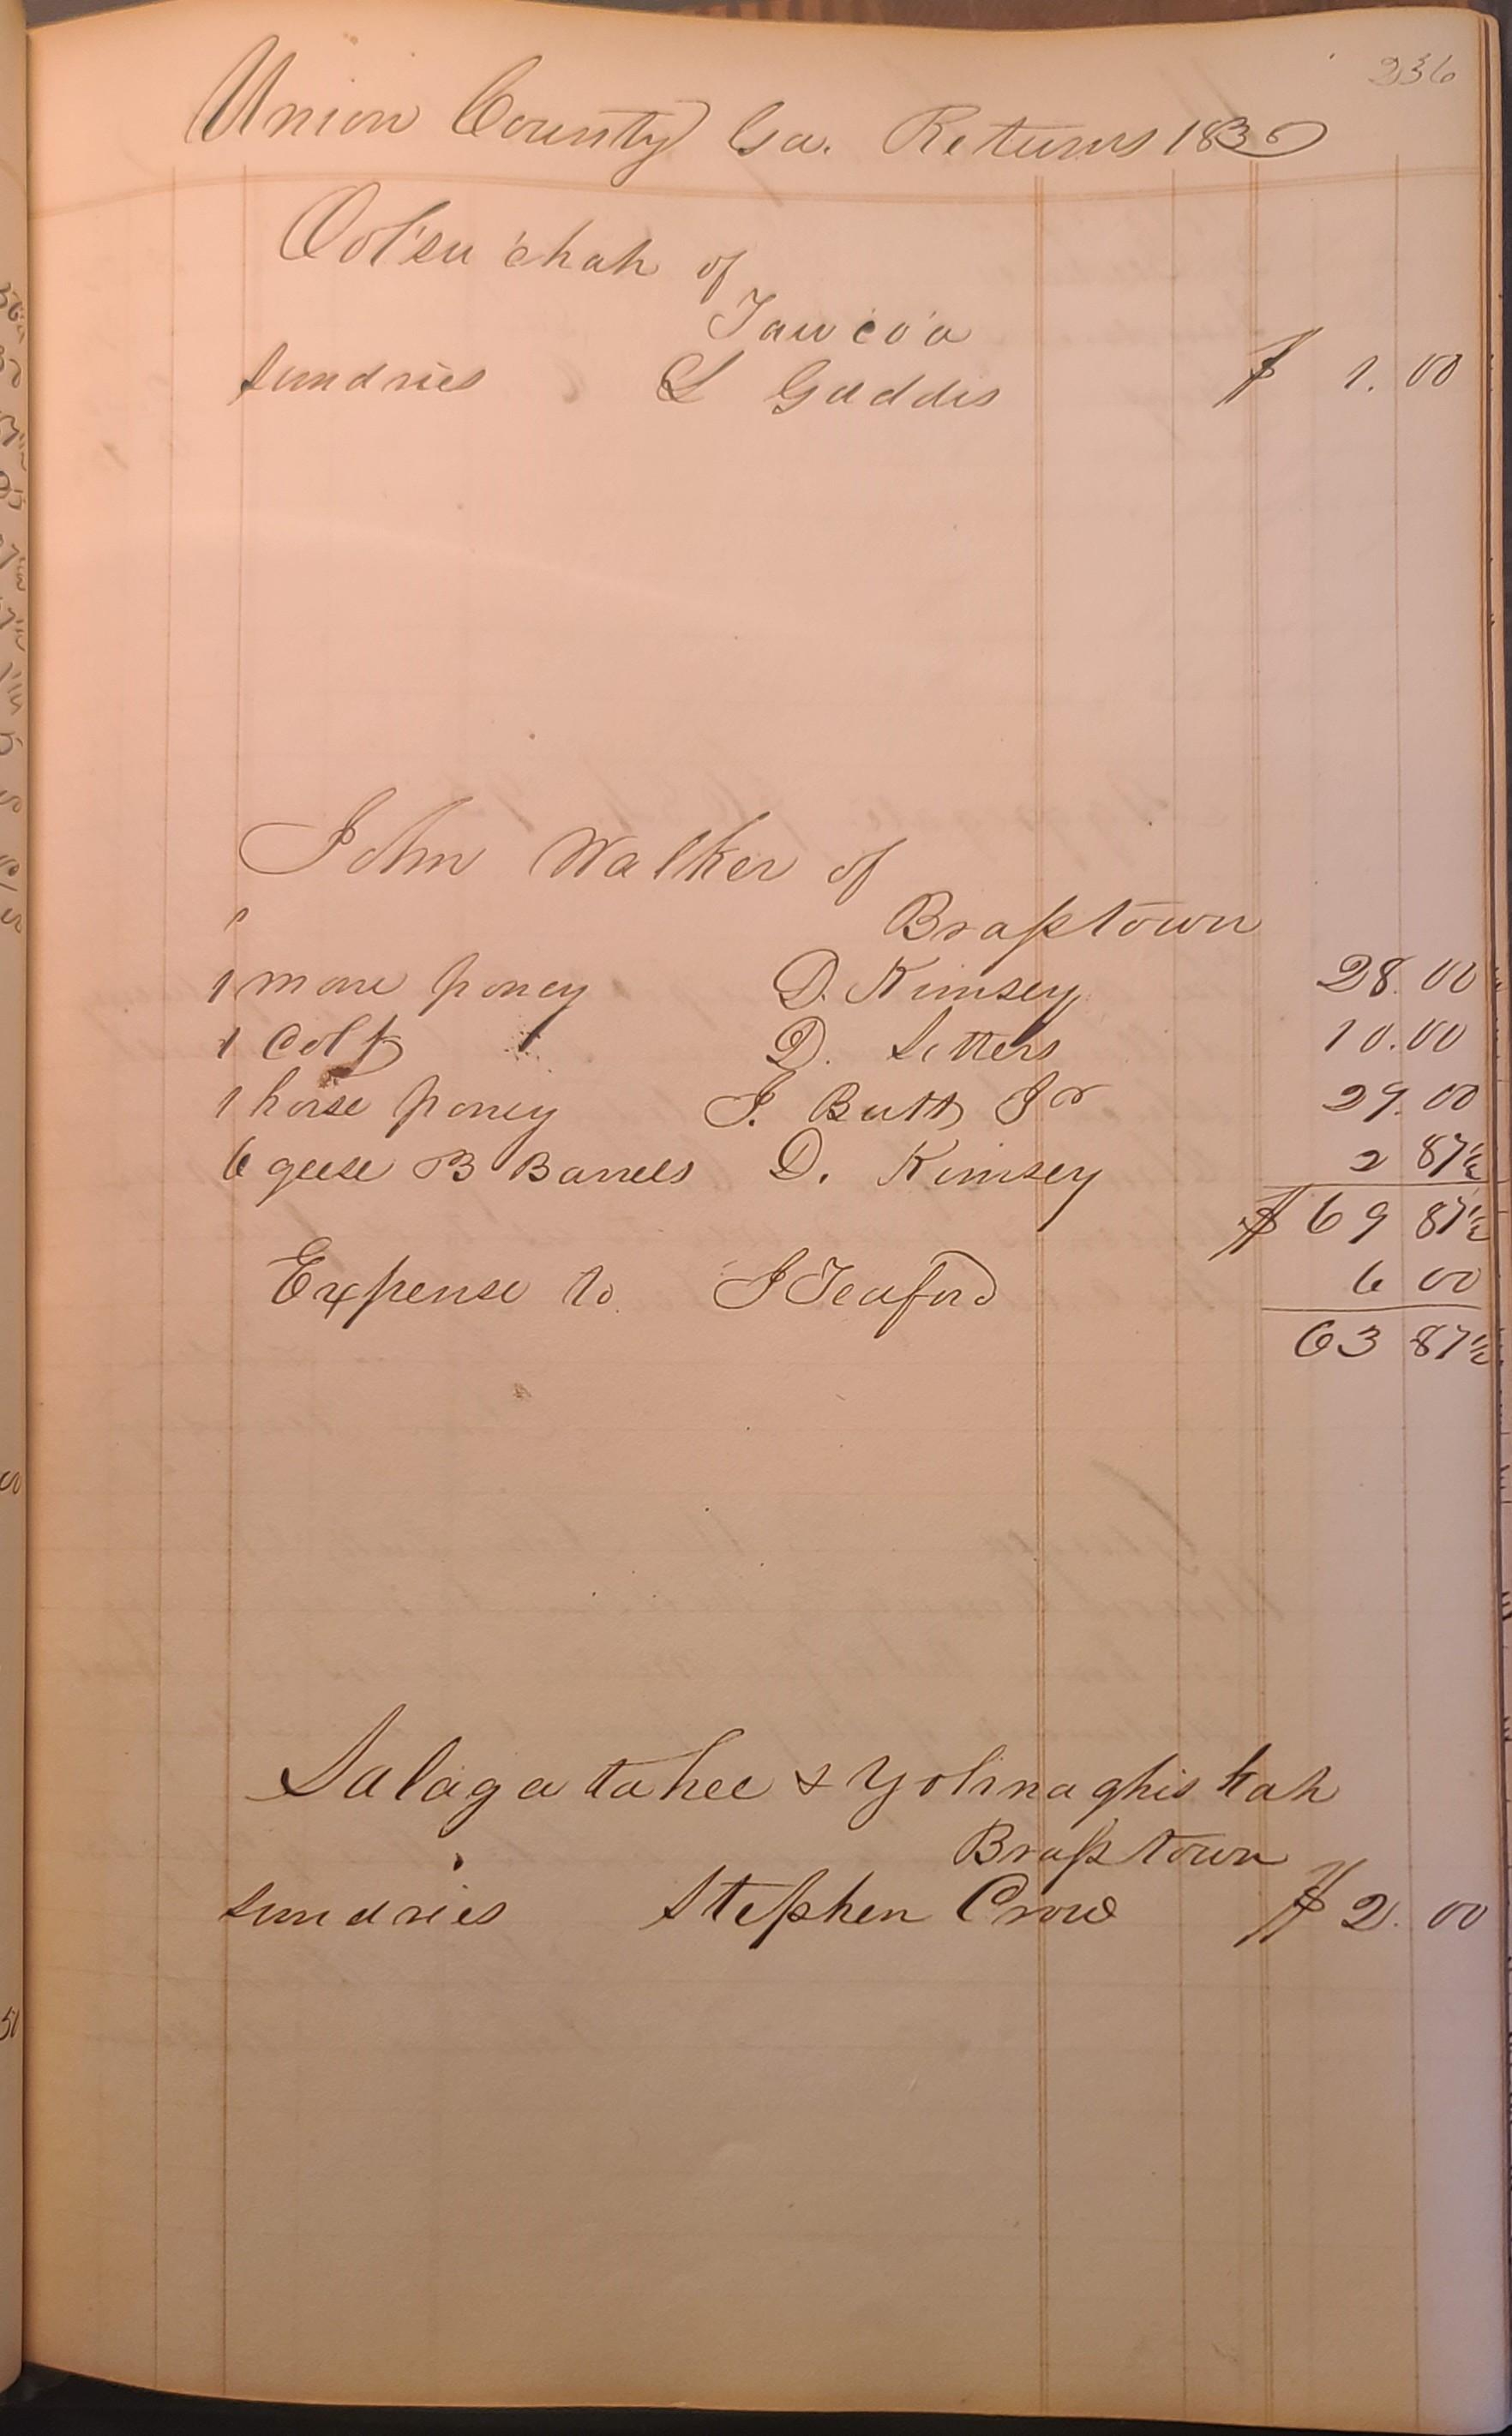 236
Union County Ga. Returns 1836
Ool'su'chah of
Taw'co'a
sundries L Gaddis $ 1.00
John Walker of
Brasstown
1 mare poney D. Kimsey 28.00
1 Colt D. Sitters 10.00
1 horse poney J. Butt Jr 29.00
6 geese 3 Barrels D. Kimsey 2 87½
$ 69 87½
Expense to J Teaford 6 00
63 87½
Salagatahee & Yohnaghiskah
Brasstown
sundries Stephen Crow $ 2.00